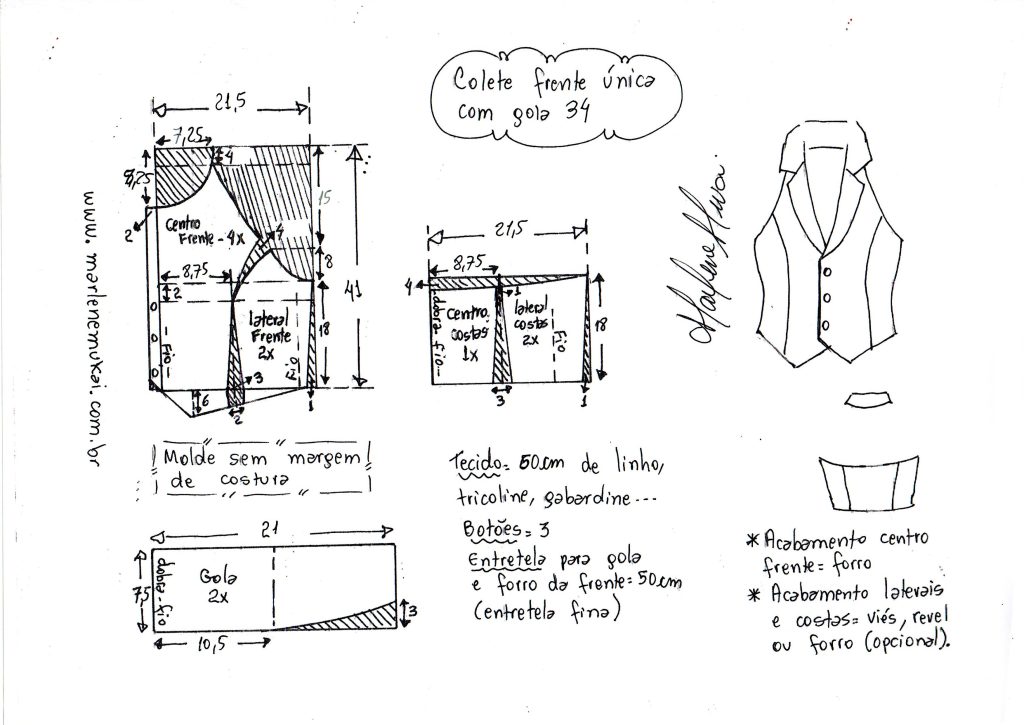 Colete frente única
com gola 34
21,5
7,25
4
8,25
2
Centro
Frente - 4x
4
15
8
8,75
2
41
18
lateral
Frente
2x
Fio
Fio
3
6
2
1
21,5
8,75
4
1
dobra-fio
Centro
costas
1x
lateral
costas
2x
Fio
18
3
1
www.marlenemukai.com.br
Marlene Mukai
Molde sem margem
de costura
21
7,5
dobra-fio
Gola
2x
3
10,5
Tecido= 50cm de linho,
tricoline, gabardine...
Botões= 3
Entretela para gola
e forro da frente= 50cm
(entretela fina)
* Acabamento centro
frente= forro
* Acabamento laterais
e costas= viés, revel
ou forro (opcional).